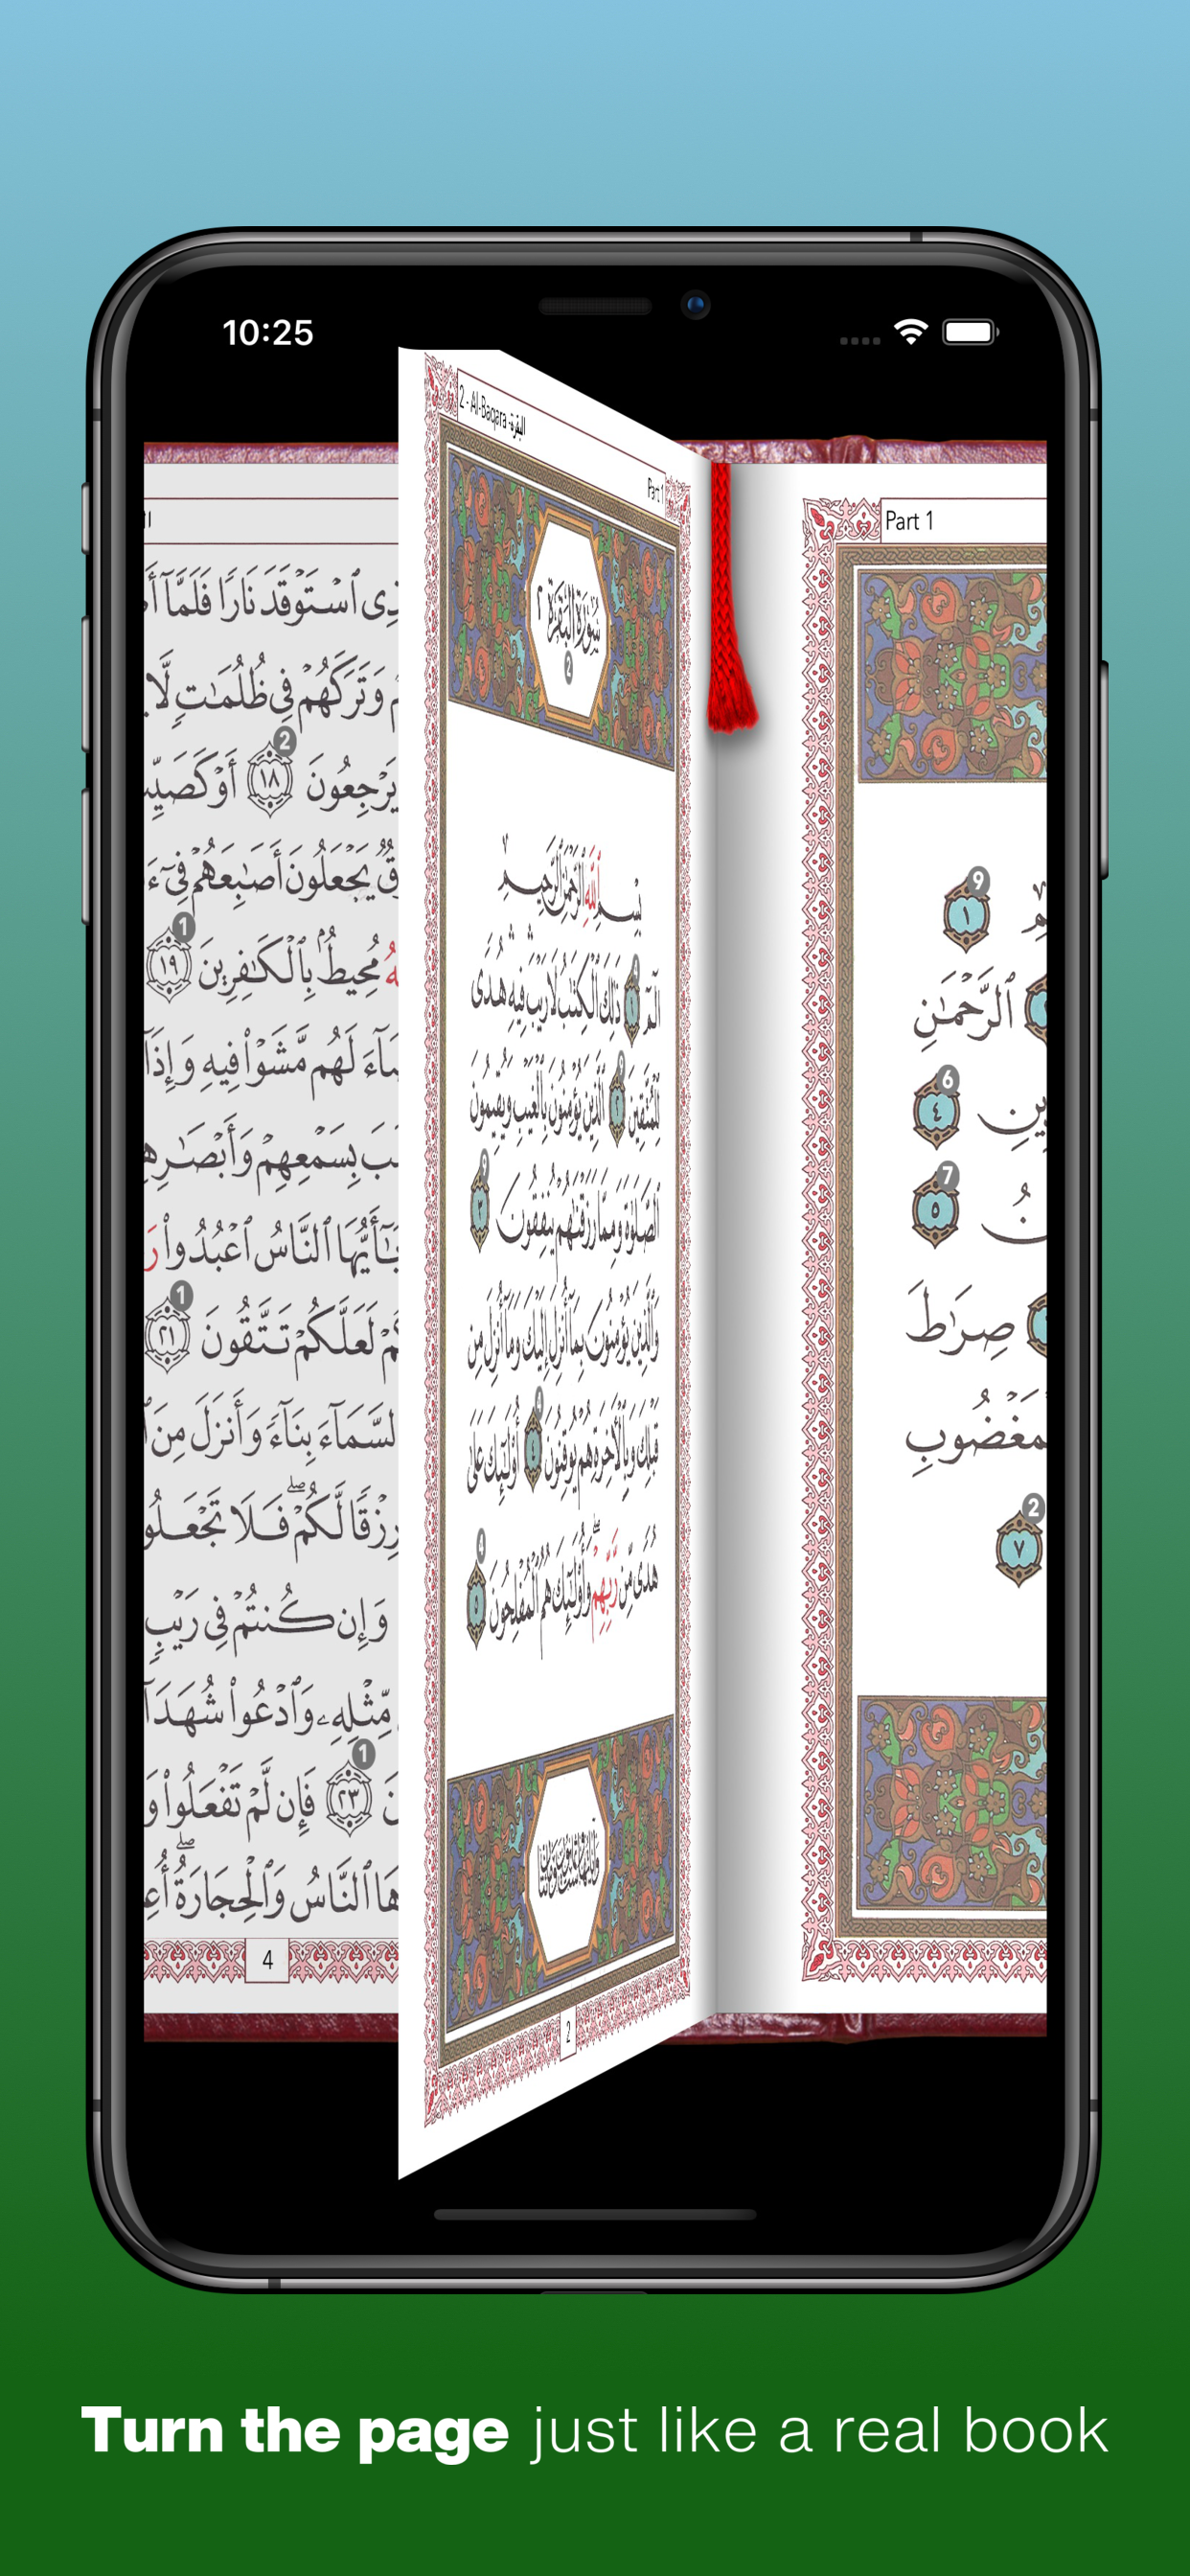 10:25
2 - Al-Baqara - البقرة
Part 1
سُورَةُ البَقَرَةِ ٢
2
بِسْمِ ٱللَّهِ ٱلرَّحْمَٰنِ ٱلرَّحِيمِ
الٓمٓ ١ ذَٰلِكَ ٱلْكِتَٰبُ لَا رَيْبَ فِيهِ هُدًى
لِّلْمُتَّقِينَ ٢ ٱلَّذِينَ يُؤْمِنُونَ بِٱلْغَيْبِ وَيُقِيمُونَ
ٱلصَّلَوٰةَ وَمِمَّا رَزَقْنَٰهُمْ يُنفِقُونَ ٣
وَٱلَّذِينَ يُؤْمِنُونَ بِمَآ أُنزِلَ إِلَيْكَ وَمَآ أُنزِلَ مِن
قَبْلِكَ وَبِٱلْءَاخِرَةِ هُمْ يُوقِنُونَ ٤ أُو۟لَٰٓئِكَ عَلَىٰ
هُدًى مِّن رَّبِّهِمْ وَأُو۟لَٰٓئِكَ هُمُ ٱلْمُفْلِحُونَ ٥
2
Part 1
١ 9
ٱلرَّحْمَٰنِ
٤ 6
٥ 7
صِرَٰطَ
٧ 2
ٱسْتَوْقَدَ نَارًا فَلَمَّآ
وَتَرَكَهُمْ فِى ظُلُمَٰتٍ لَّا
يَرْجِعُونَ ١٨ 2 أَوْ كَصَيِّبٍ
يَجْعَلُونَ أَصَٰبِعَهُمْ فِىٓ
مُحِيطٌۢ بِٱلْكَٰفِرِينَ ١٩ 1
لَهُم مَّشَوْا۟ فِيهِ وَإِذَآ
بِسَمْعِهِمْ وَأَبْصَٰرِهِ
يَٰٓأَيُّهَا ٱلنَّاسُ ٱعْبُدُوا۟
لَعَلَّكُمْ تَتَّقُونَ ٢١ 1
ٱلسَّمَآءَ بِنَآءً وَأَنزَلَ مِنَ
رِزْقًا لَّكُمْ ۖ فَلَا تَجْعَلُو
وَإِن كُنتُمْ فِى رَيْبٍ
مِّثْلِهِۦ وَٱدْعُوا۟ شُهَدَآ
٢٣ 1 فَإِن لَّمْ تَفْعَلُوا۟ وَ
ٱلنَّاسُ وَٱلْحِجَارَةُ ۖ أُعِ
4
Turn the page just like a real book